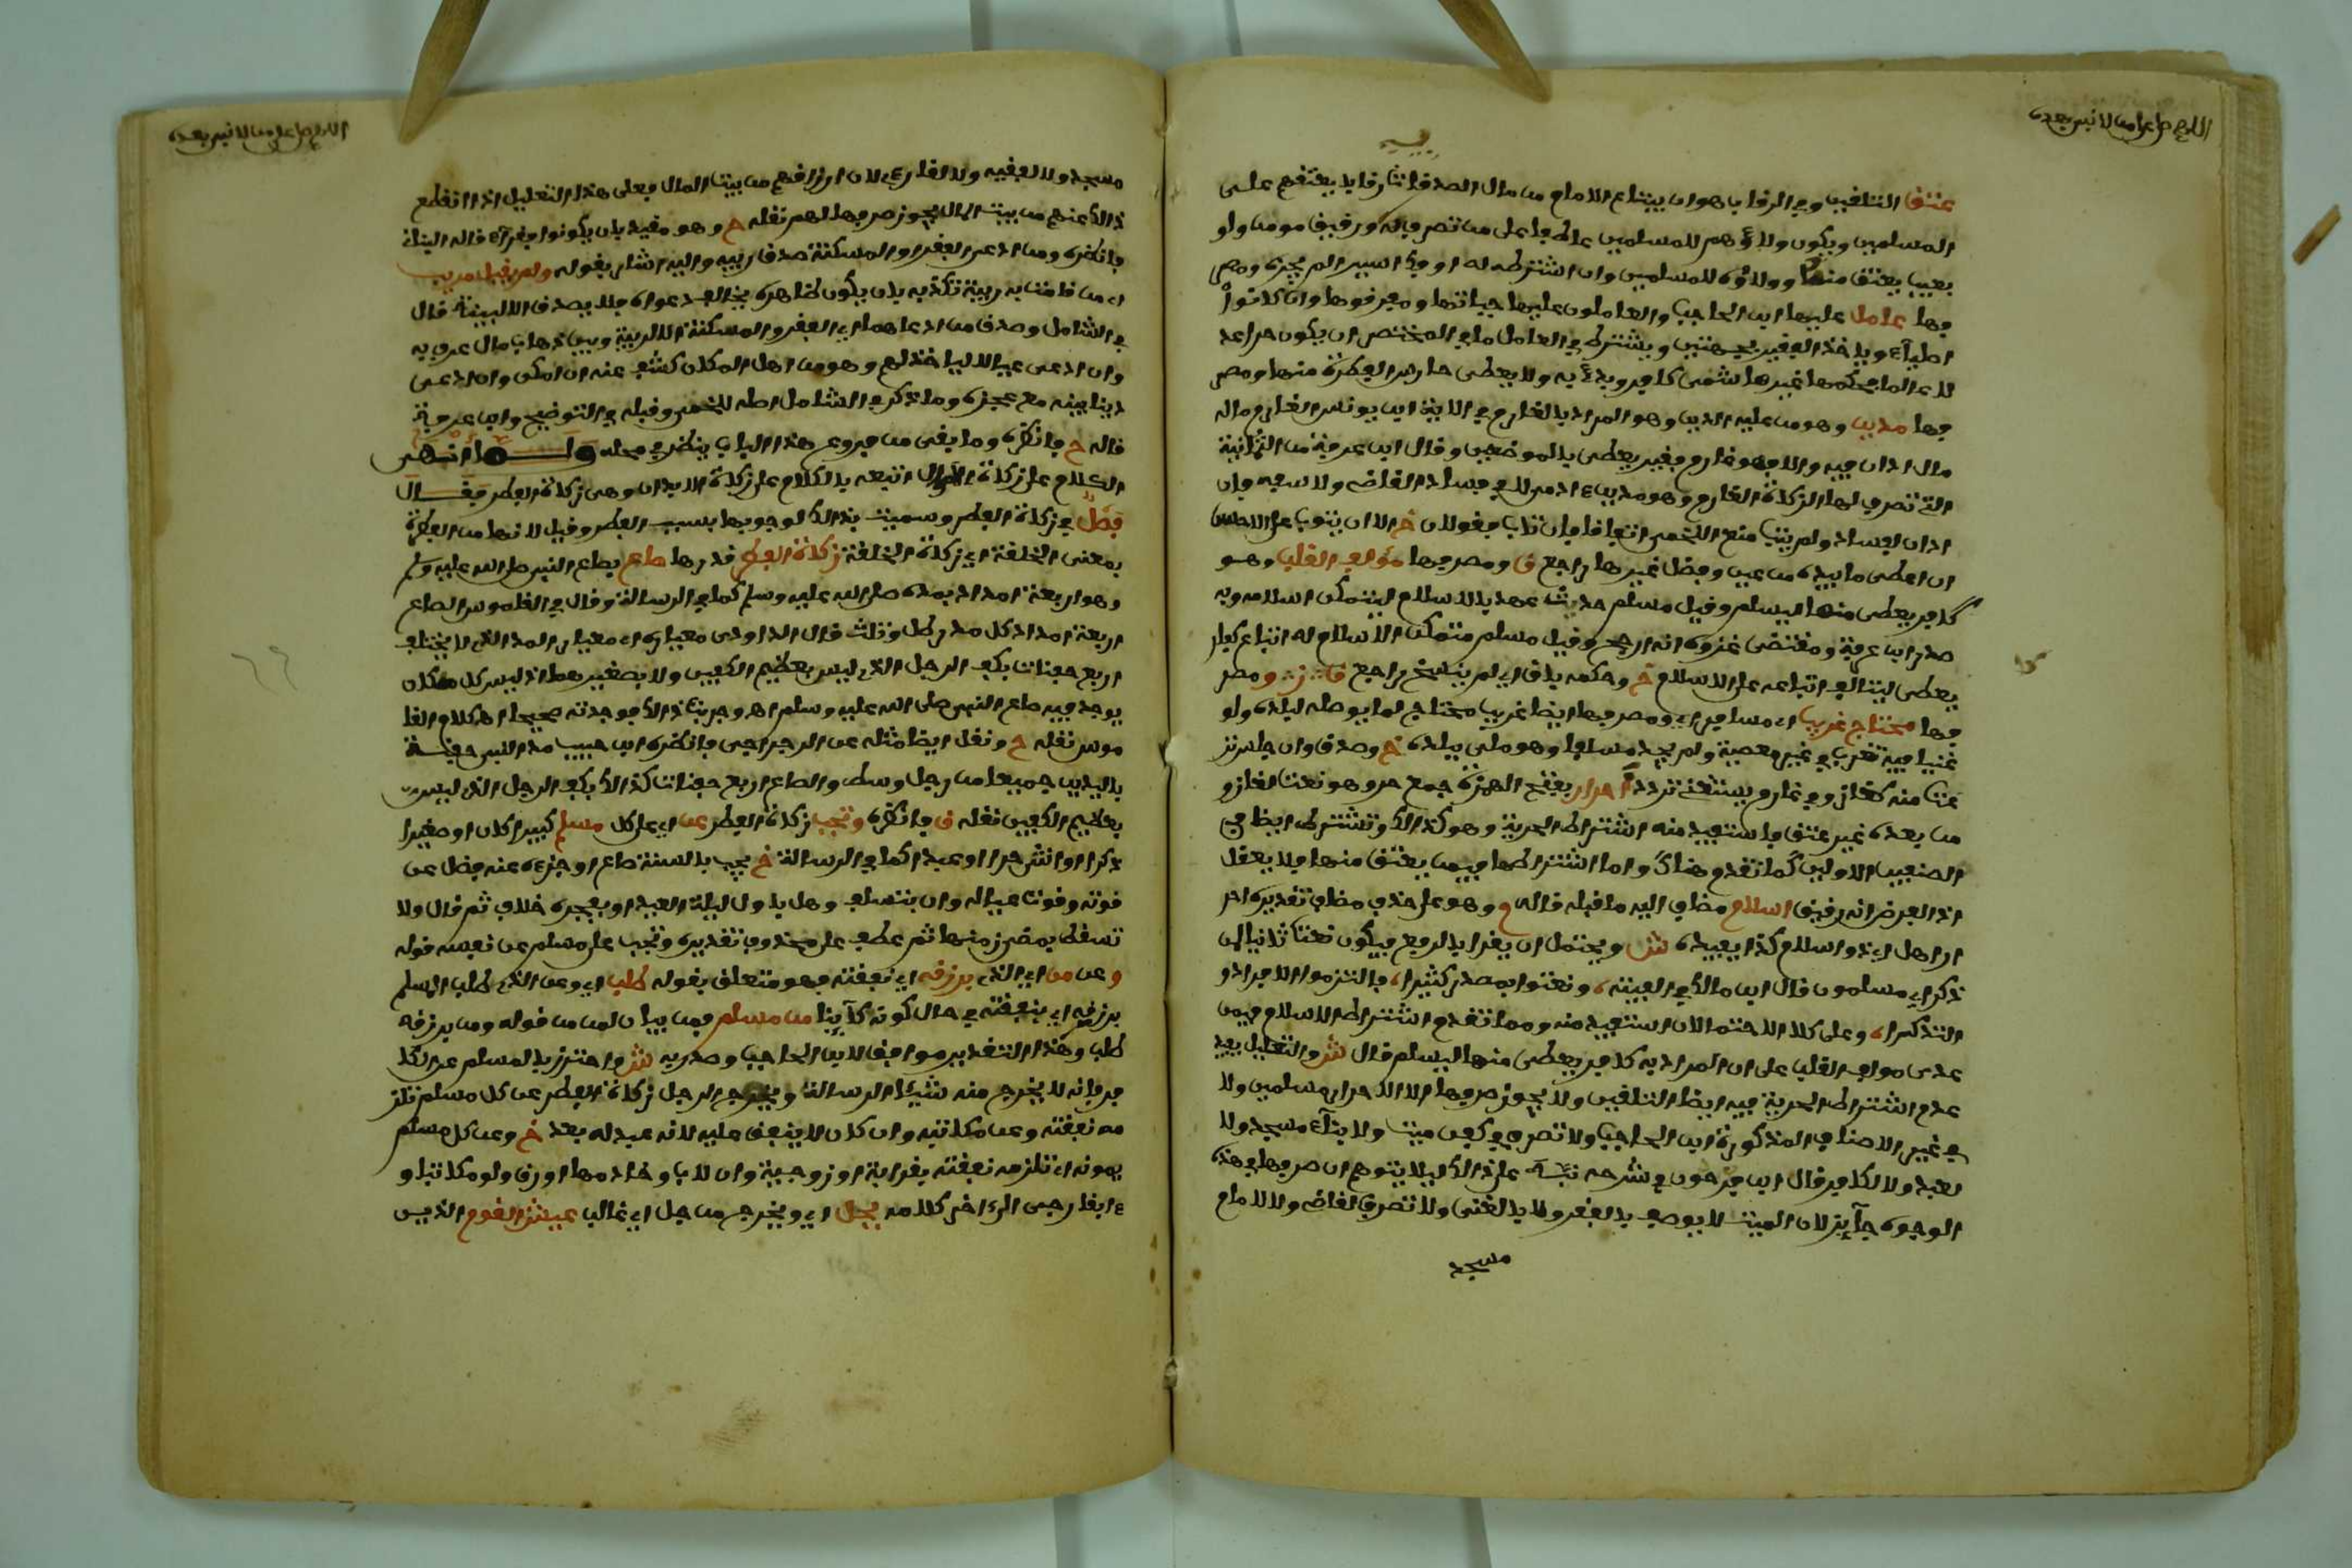 اللهم صل على من لا نبي بعده
عتق التلقين وفي الرقاب هو ان يبتاع الامام من مال الصدقات رقابا يعتقهم على
المسلمين ويكون ولاؤهم للمسلمين
بعيب يعتق منها وولاؤه للمسلمين وان اشترطه له او فك اسيرا لم يجزه ومصر
فها عامل عليها ابن الحاجب والعاملون عليها جباتها ومفرقوها وان كانوا
اغنياء وياخذ الفقير بجهتين ويشترط في العامل ما في المختصر ان يكون حرا عد
لا عالما بحكمها غير هاشمي كافر وبدئ به ولا يعطى حارس الفطرة منها ومصر
فها مدين وهو من عليه الدين وهو المراد بالغارم في الاية ابن يونس الغارم ماله
مال ادان فيه والا فهو غارم فقير يعطى بالموضعين وقال ابن عرفة من الثمانية
التي تصرف لها الزكاة الغارم وهو مدين ءادمي لا في فساد القاضي ولا سعيه فان
ادان لفساد ولم يتب منع اللخمي اتفاقا فان تاب فقولان خ الا ان يتوب على الاحسن
ان اعطى ما بيده من عين وفضل غيرها راجع ق ومصرفها مؤلف القلب وهو
كافر يعطى منها ليسلم وقيل مسلم حديث عهد بالاسلام ليتمكن اسلامه وبه
صدر ابن عرفة ومقتضى عزوه انه ارجح وقيل مسلم متمكن الاسلام له اتباع كفار
يعطى ليتالف اتباعه على الاسلام خ وحكمه باق اي لم ينسخ راجع ق ومصر
فها محتاج غريب اي مسافر اي ومصرفها ايضا غريب محتاج لما يوصله لبلده ولو
غنيا فيه تغرب في غير معصية ولم يجد مسلفا وهو ملي ببلده خ وصدق وان جلس نز
عت منه كغاز وفي غارم يستغني تردد احرار بفتح الهمزة جمع حر وهو نعت لغاز و
من بعده غير عتق فاستفيد منه اشتراط الحرية وهو كذلك وتشترط ايضا في
الصنفين الاولين كما تقدم هناك واما اشتراطها فيمن يعتق منها فلا يعقل
اذ الغرض انه رقيق اسلام مضاف اليه ما قبله قاله م وهو على حذف مضاف تقديره احر
ار اهل اي ذو اسلام كذا يفيده ش ويحتمل ان يقرا بالرفع فيكون نعتا ثانيا لمن
ذكر اي مسلمون قال ابن مالك في الفيته ونعتوا بمصدر كثيرا فالتزموا الافراد و
التذكيرا وعلى كلا الاحتمالان استفيد منه ومما تقدم اشتراط الاسلام فيمن
عدى مولف القلب على ان المراد به كافر يعطى منها ليسلم قال ش والتعليل يفيد
عدم اشتراط الحرية فيه ايضا التلقين ولا يجوز صرفها الا الاحرار مسلمين ولا
في غير الاصناف المذكورة ابن الحاجب ولا تصرف في كفن ميت ولا بناء مسجد ولا
لعبد ولا لكافر قال ابن فرحون في شرحه نبه على ذلك ليلا يتوهم ان صرفها في هذه
الوجوه جائز لان الميت لا يوصف بالفقر ولا بالغنى ولا تصرف لقاض ولا لامام
مسجد
اللهم صل على من لا نبي بعده
مسجد ولا لفقيه ولا لقارئ لان ارزاقهم من بيت المال فعلى هذا التعليل اذا انقطع
ذلك عنهم من بيت المال يجوز صرفها لهم نقله ح وهو مقيد بان يكونوا فقراء قاله البناني
فانظره ومن ادعى الفقر او المسكنة صدق ارتيب واليه اشار بقوله ولم يقبل مريب
اي من قامت به ريبة تكذبه بان يكون ظاهره يخالف دعواه فلا يصدق الا ببينة قال
في الشامل وصدق من ادعاهما اي الفقر والمسكنة الا لريبة وبين ذهاب مال عرف به
وان ادعى عيالا لياخذ لهم وهو من اهل المكان كشف عنه ان امكن وان ادعى
دينا بينه مع عجزه وما ذكر في الشامل اصله للخمي وقبله في التوضيح وابن عرفة
قاله ح فانظره وما يفي من فروع هذا الباب ينظر في محله ولــما انتهى
الكلام على زكاة الاموال اتبعه بالكلام على زكاة الابدان وهي زكاة الفطر فقال
فصل في زكاة الفطر وسميت بذلك لوجوبها بسبب الفطر وقيل لانها من الفطرة
بمعنى الخلقة اي زكاة الخلقة زكاة الفطر قدرها صاع بصاع النبي صلى الله عليه وسلم
وهو اربعة امداد بمده صلى الله عليه وسلم كما في الرسالة وقال في القاموس الصاع
اربعة امداد كل مد رطل وثلث قال الداودي معياره اي معيار المد الذي لا يختلف
اربع حفنات بكف الرجل الذي ليس بعظيم الكفين ولا بصغيرهما اذ ليس كل مكان
يوجد فيه صاع النبي صلى الله عليه وسلم اهـ وجربت ذلك فوجدته صحيحا اهـ كلام القا
موس نقله ح ونقل ايضا مثله عن الرجراجي فانظره ابن حبيب مد النبي حفنة
باليدين جميعا من رجل وسط والصاع اربع حفنات كذلك بكف الرجل الذي ليس
بعظيم الكفين نقله ق فانظره وتجب زكاة الفطر عن اي على كل مسلم كبيرا كان او صغيرا
ذكرا او انثى حرا او عبدا كما في الرسالة خ يجب بالسنة صاع او جزءه عنه فضل عن
قوته وقوت عياله وان بتسلف وهل باول ليلة العيد او بفجره خلاف ثم قال ولا
تسقط بمضي زمنها ثم عطف على محذوف تقديره وتجب على مسلم عن نفسه قوله
وعن من اي الذي برزقه اي نفقته فهو متعلق بقوله طلب اي وعن الذي طلب المسلم
برزقه اي بنفقته في حال كونه كائنا من مسلم فمن بيان لمن من قوله ومن يرزقه
طلب وهذا التقدير موافق لابن الحاجب وصدر به ش واحترز بالمسلم عن الكا
فر فانه لا يخرج منه شيئا الرسالة ويخرج الرجل زكاة الفطر عن كل مسلم تلز
مه نفقته وعن مكاتبه وان كان لا ينفق عليه لانه عبد له بعد خ وعن كل مسلم
يمونه اي تلزمه نفقته بقرابة او زوجية وان لاب وخادمها او رق ولو مكاتبا و
ءابقا رجي الى ءاخر كلامه بجل اي ويخرج من جل اي غالب عيش القوم الذين